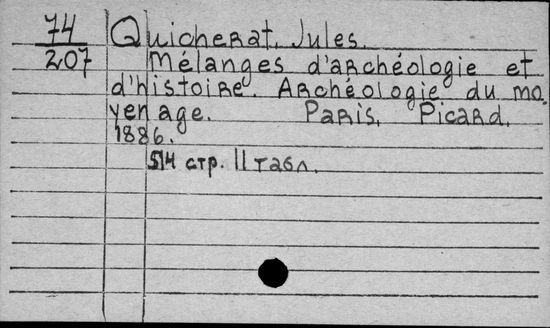 74
207
Quicherat, Jules.
Mélanges d'archéologie et
d'histoire. Archéologie du mo
yen age. Paris, Picard,
1886.
514 стр. 11 табл.